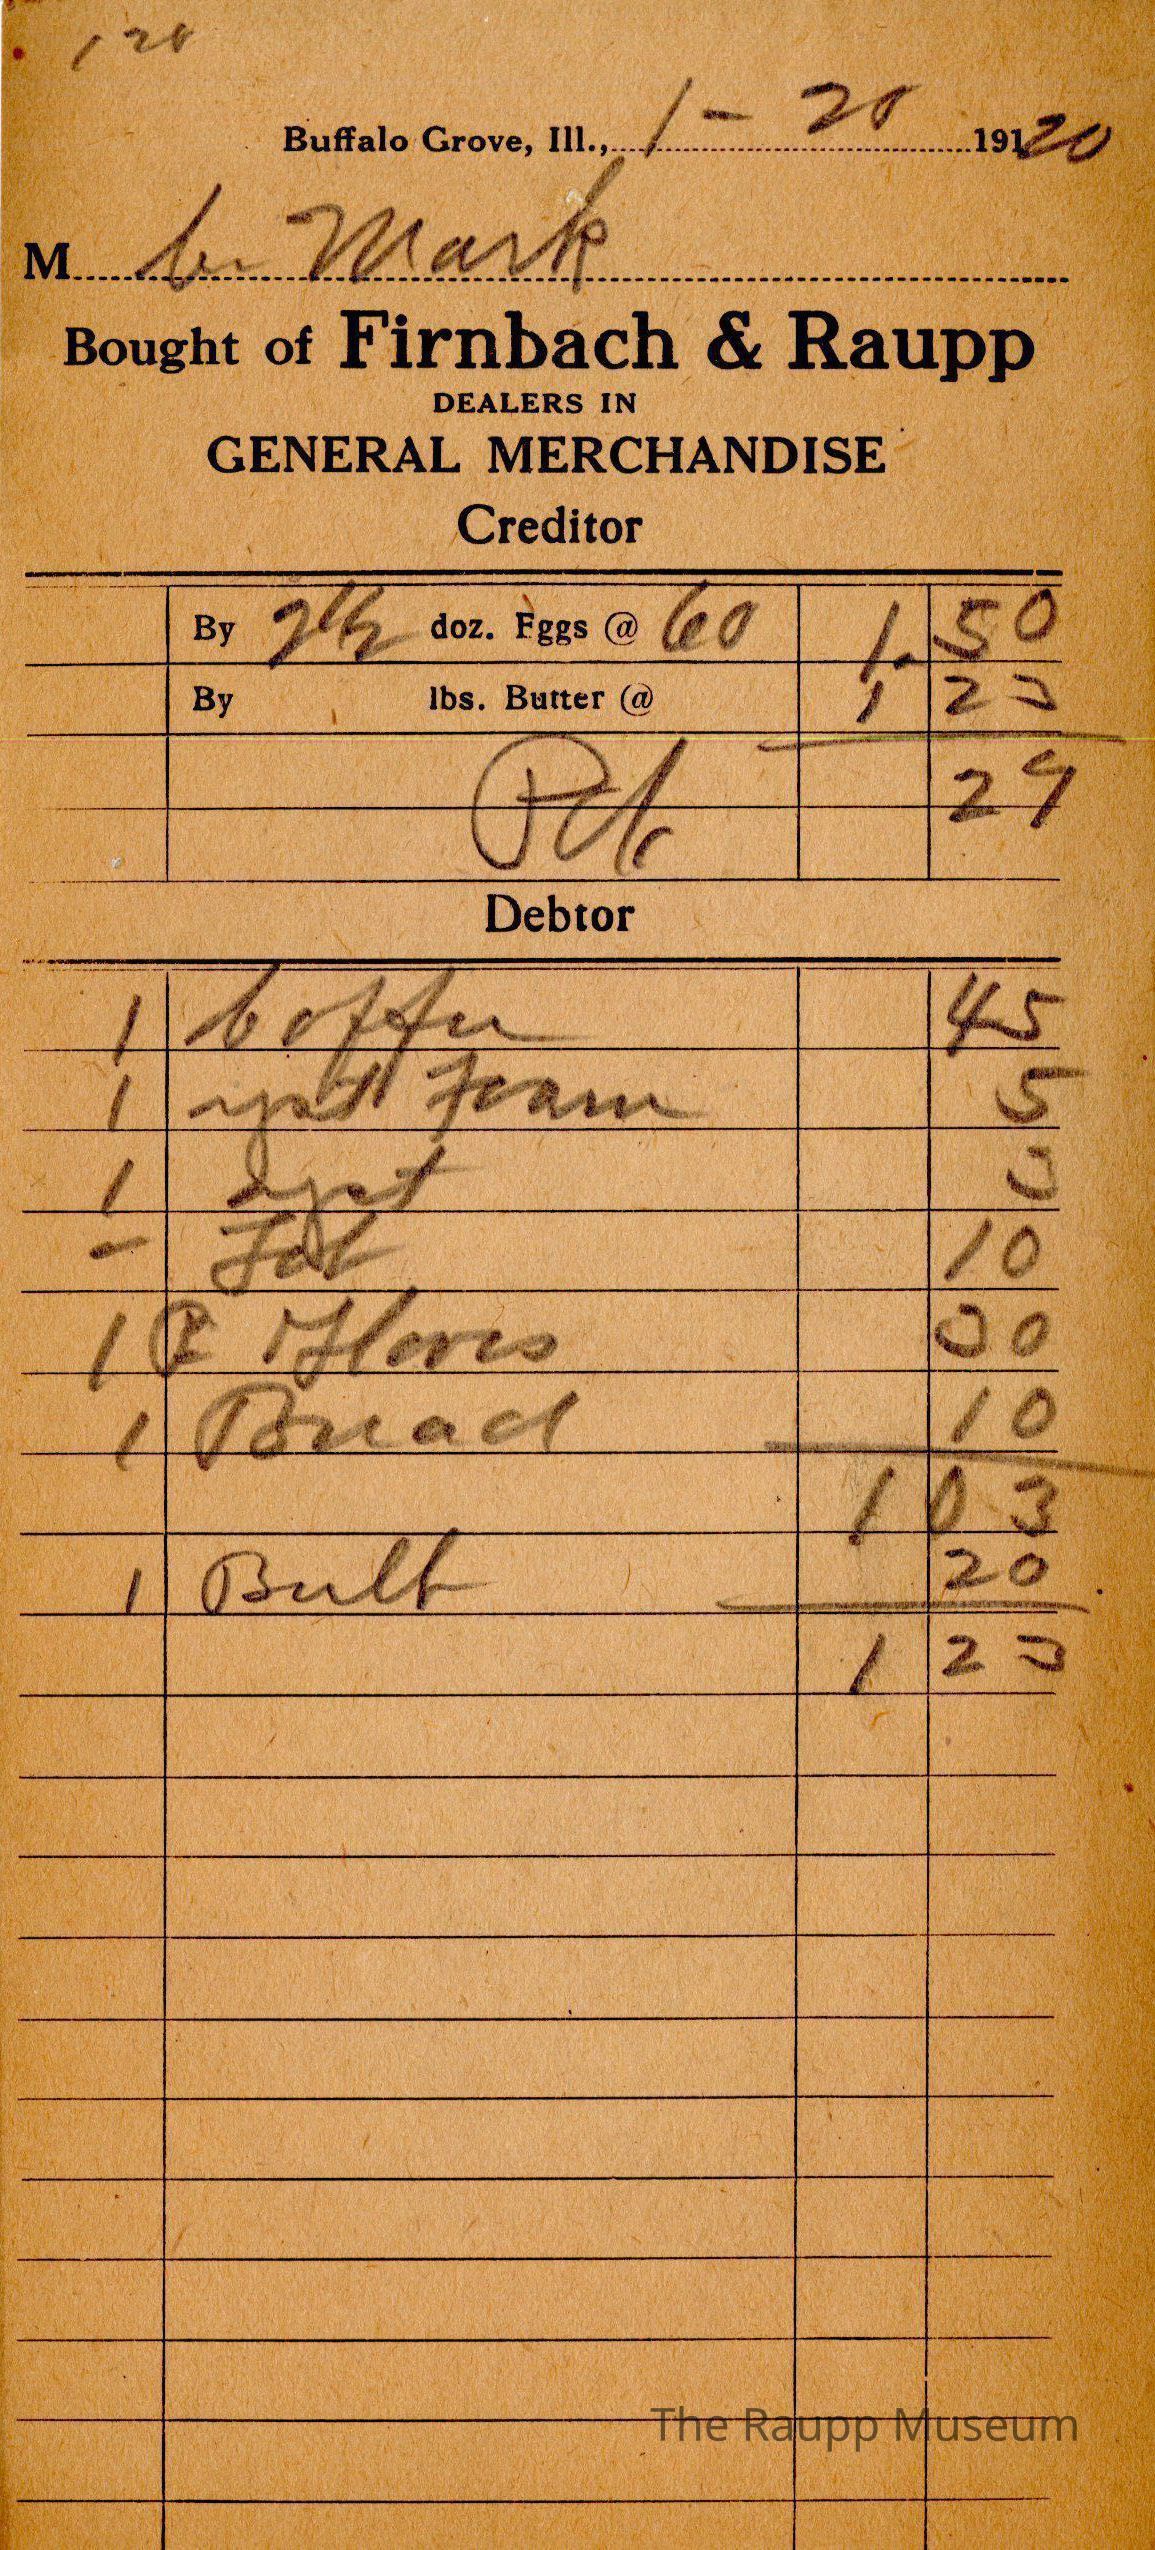 1 20
Buffalo Grove, Ill., 1 - 20 191 20
M Mark
Bought of Firnbach & Raupp
DEALERS IN
GENERAL MERCHANDISE
Creditor
By 2 1/2 doz. Eggs @ 60 1. 50
By lbs. Butter @ 1 23
Pd. 27
Debtor
1 Coffee 45
1 yst Foam 5
1 yst 3
- Tob 10
1 P Gloves 30
1 Bread 10
1 03
1 20
1 23
The Raupp Museum